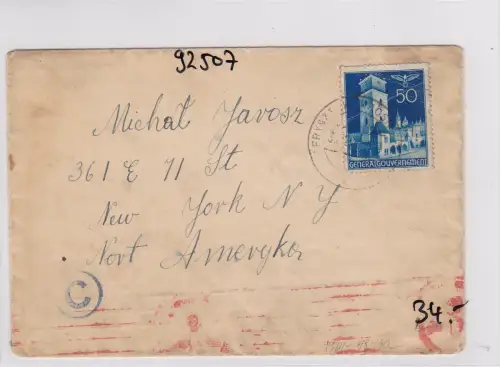 92507
50
GENERALGOUVERNEMENT
Michał Javosz
361 E 71 St
New York N Y
Nort Ameryka
C
34.-